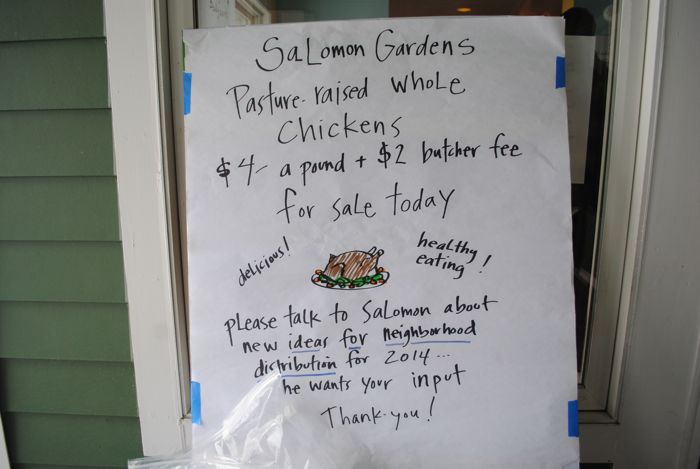 Salomon Gardens
Pasture-raised whole
Chickens
$4- a pound + $2 butcher fee
for sale today
delicious!
healthy
eating!
please talk to Salomon about
new ideas for neighborhood
distribution for 2014...
he wants your input
Thank-you!